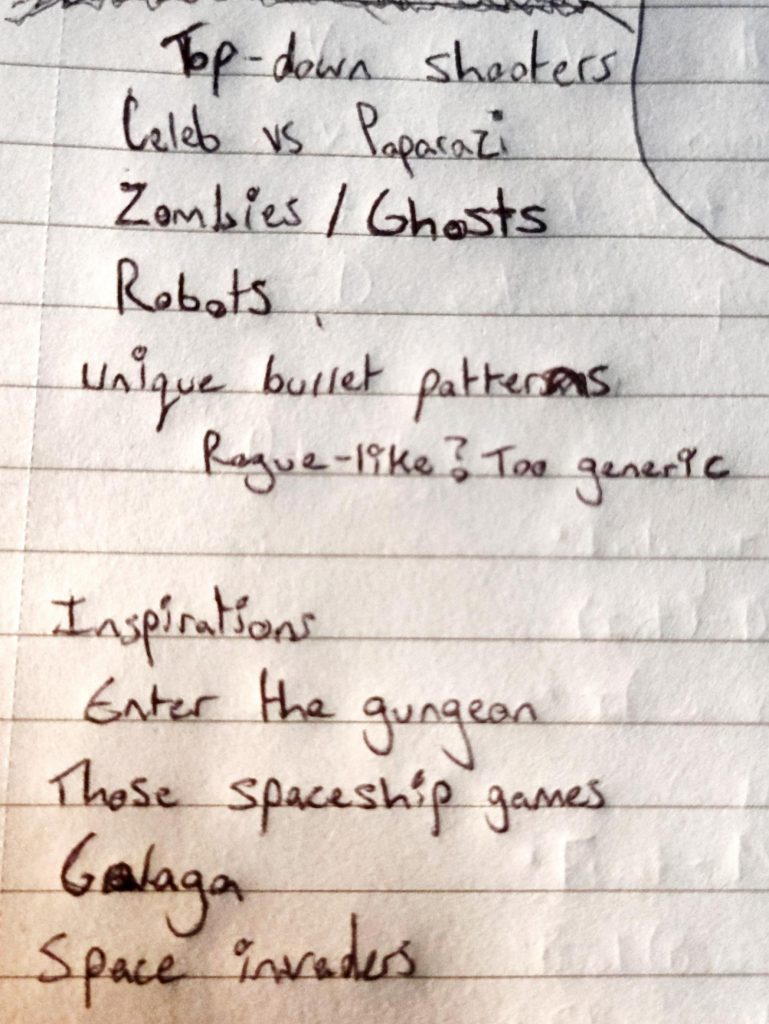 Top-down shooters
Celeb vs Paparazi
Zombies / Ghosts
Robots
Unique bullet patterns
Rogue-like? Too generic
Inspirations
Enter the gungeon
Those spaceship games
Galaga
Space invaders